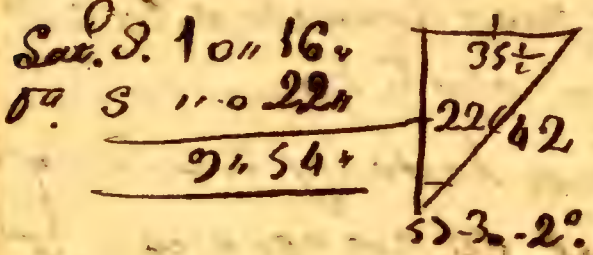 Lat. S. 10,, 16,,
S ,, 0 22,,
9,, 54,,
35½
22
42
5)-3-2°.